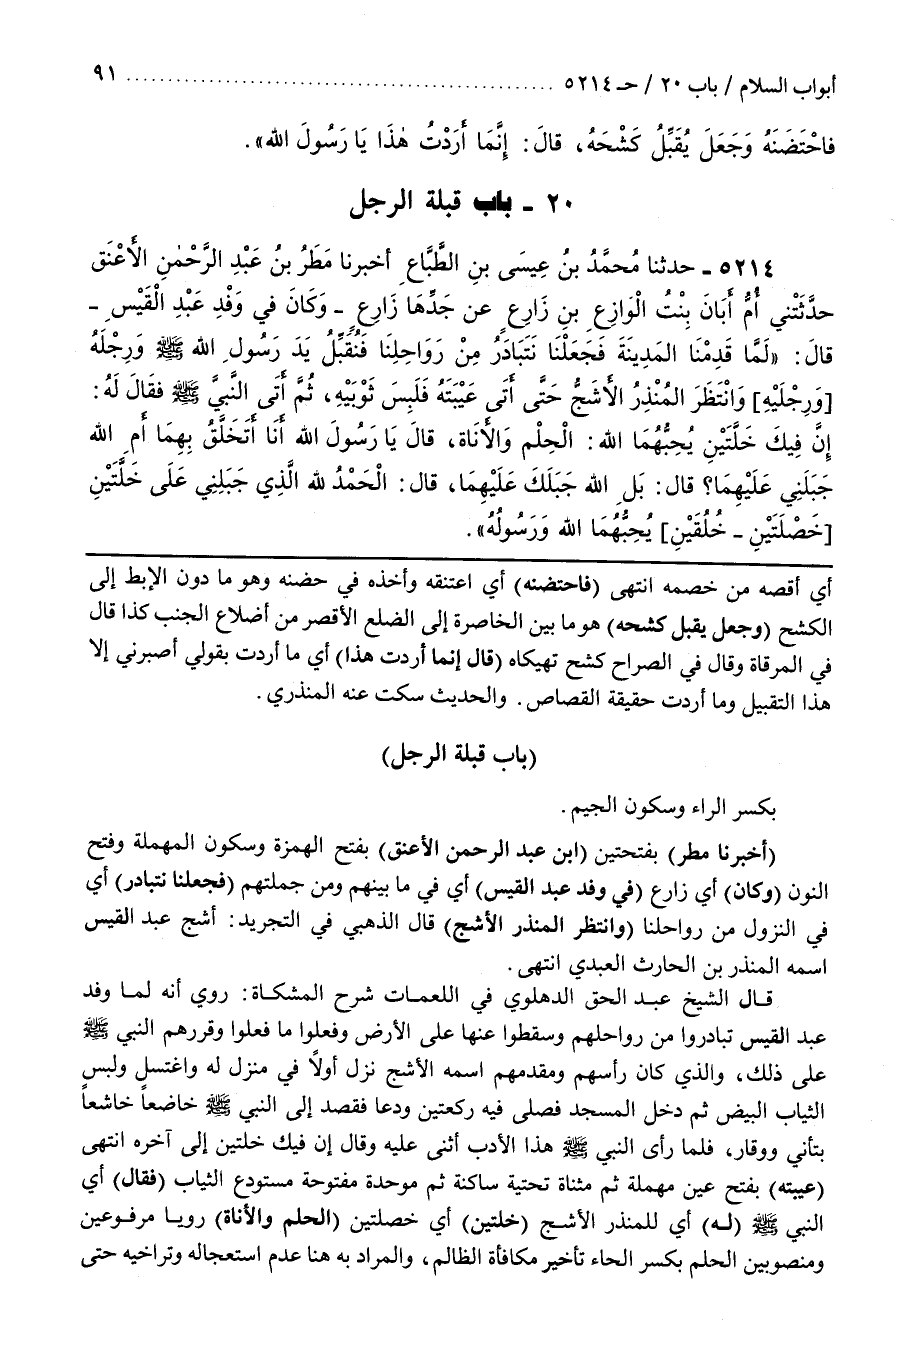 أبواب السلام / باب ٢٠ / حـ ٥٢١٤ ................................................ ٩١
فاحْتَضَنَهُ وَجَعَلَ يُقَبِّلُ كَشْحَهُ، قالَ: إنَّمَا أَرَدْتُ هٰذَا يَا رَسُولَ الله».
٢٠ ـ باب قبلة الرجل
٥٢١٤ ـ حدثنا مُحمَّدُ بنُ عِيسَى بنِ الطَّبَّاعِ أخبرنا مَطَرُ بنُ عَبْدِ الرَّحْمٰنِ الأَعْنَق
حدَّثَتْني أُمُّ أَبَانَ بِنْتُ الْوَازِعِ بنِ زَارِعٍ عن جَدِّهَا زَارِعٍ ـ وَكَانَ في وَفْدِ عَبْدِ الْقَيْسِ ـ
قالَ: «لَمَّا قَدِمْنَا المَدِينَةَ فَجَعَلْنَا نَتَبَادَرُ مِنْ رَوَاحِلِنَا فَنُقَبِّلُ يَدَ رَسُولِ الله ﷺ وَرِجْلَهُ
[وَرِجْلَيْهِ] وَانْتَظَرَ المُنْذِرُ الأَشَجُّ حَتَّى أَتَى عَيْبَتَهُ فَلَبِسَ ثَوْبَيْهِ، ثُمَّ أَتَى النَّبِيَّ ﷺ فقَالَ لَهُ:
إنَّ فِيكَ خَلَّتَيْنِ يُحِبُّهُمَا الله: الْحِلْم وَالأَنَاة، قالَ يَا رَسُولَ الله أَنَا أَتَخَلَّقُ بِهِمَا أَمِ الله
جَبَلَنِي عَلَيْهِمَا؟ قال: بَلِ الله جَبَلَكَ عَلَيْهِمَا، قال: الْحَمْدُ لله الَّذِي جَبَلَنِي عَلَى خَلَّتَيْنِ
[خَصْلَتَيْنِ ـ خُلُقَيْنِ] يُحِبُّهُمَا الله وَرَسُولُهُ».
أي أقصه من خصمه انتهى (فاحتضنه) أي اعتنقه وأخذه في حضنه وهو ما دون الإبط إلى
الكشح (وجعل يقبل كشحه) هو ما بين الخاصرة إلى الضلع الأقصر من أضلاع الجنب كذا قال
في المرقاة وقال في الصراح كشح تهيكاه (قال إنما أردت هذا) أي ما أردت بقولي أصبرني إلا
هذا التقبيل وما أردت حقيقة القصاص. والحديث سكت عنه المنذري.
(باب قبلة الرجل)
بكسر الراء وسكون الجيم.
(أخبرنا مطر) بفتحتين (ابن عبد الرحمن الأعنق) بفتح الهمزة وسكون المهملة وفتح
النون (وكان) أي زارع (في وفد عبد القيس) أي في ما بينهم ومن جملتهم (فجعلنا نتبادر) أي
في النزول من رواحلنا (وانتظر المنذر الأشج) قال الذهبي في التجريد: أشج عبد القيس
اسمه المنذر بن الحارث العبدي انتهى.
قـال الشيخ عبـد الحق الدهلوي في اللعمـات شرح المشكـاة: روي أنه لمـا وفد
عبد القيس تبادروا من رواحلهم وسقطوا عنها على الأرض وفعلوا ما فعلوا وقررهم النبي ﷺ
على ذلك، والذي كان رأسهم ومقدمهم اسمه الأشج نزل أولاً في منزل له واغتسل ولبس
الثياب البيض ثم دخل المسجد فصلى فيه ركعتين ودعا فقصد إلى النبي ﷺ خاضعاً خاشعاً
بتأني ووقار، فلما رأى النبي ﷺ هذا الأدب أثنى عليه وقال إن فيك خلتين إلى آخره انتهى
(عيبته) بفتح عين مهملة ثم مثناة تحتية ساكنة ثم موحدة مفتوحة مستودع الثياب (فقال) أي
النبي ﷺ (لـه) أي للمنذر الأشـج (خلتين) أي خصلتين (الحلم والأناة) رويـا مرفـوعين
ومنصوبين الحلم بكسر الحاء تأخير مكافأة الظالم، والمراد به هنا عدم استعجاله وتراخيه حتى